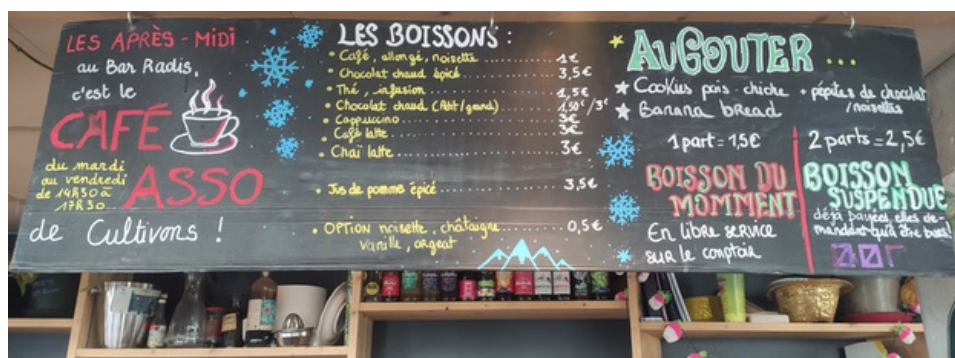 LES APRÈS-MIDI
au Bar Radis,
c'est le
CAFÉ
ASSO
du mardi
au vendredi
de 14H30 à
17H30...
de Cultivons !
LES BOISSONS :
• Café, allongé, noisette .......... 1€
• Chocolat chaud épicé .......... 3,5€
• Thé, infusion .......... 1,5€
• Chocolat chaud (Petit/grand) .......... 1,50€/3€
• Cappuccino .......... 3€
• Café latte .......... 3€
• Chaï latte .......... 3€
• Jus de pomme épicé .......... 3,5€
• OPTION noisette, châtaigne, .......... 0,5€
vanille, orgeat
AU GOUTER ...
★ Cookies pois-chiche + pépites de chocolat
/noisettes
★ Banana bread
1 part = 1,5€
2 parts = 2,5€
BOISSON DU
MOMMENT
En libre service
sur le comptoir
BOISSON
SUSPENDUE
déjà payées, elles de-
mandent qu'à être bues!